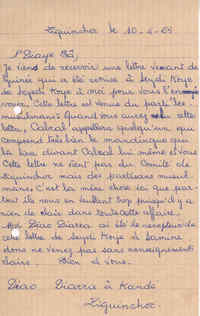 Ziguinchor le 10-4-65
N'Diaye Bâ,
Je viens de recevoir une lettre venant de
Guinée qui a été remise à Seydi Koye
de Seydi Koye à moi pour vous l'envoyer
Cette lettre est venue du parti les
musulmans. Quand vous aurez cette
lettre, Cabral appellera quelqu'un qui
comprend très bien le mandingue qui
la lira, devant Cabral lui même et vous
Cette lettre ne vient pas du Comité de
Ziguinchor mais des partisans musul
mans. C'est la même chose ici que par
tout ils nous en veulent trop puisqu'il y a
rien de clair dans toute cette affaire.
Moi Diao Diarra ai été le récepteur de
cette lettre de Seydi Koye à Lamine
donc ne venez pas sans renseignement
claire. Bien à vous.
Diao Diarra à Kande
Ziguinchor.